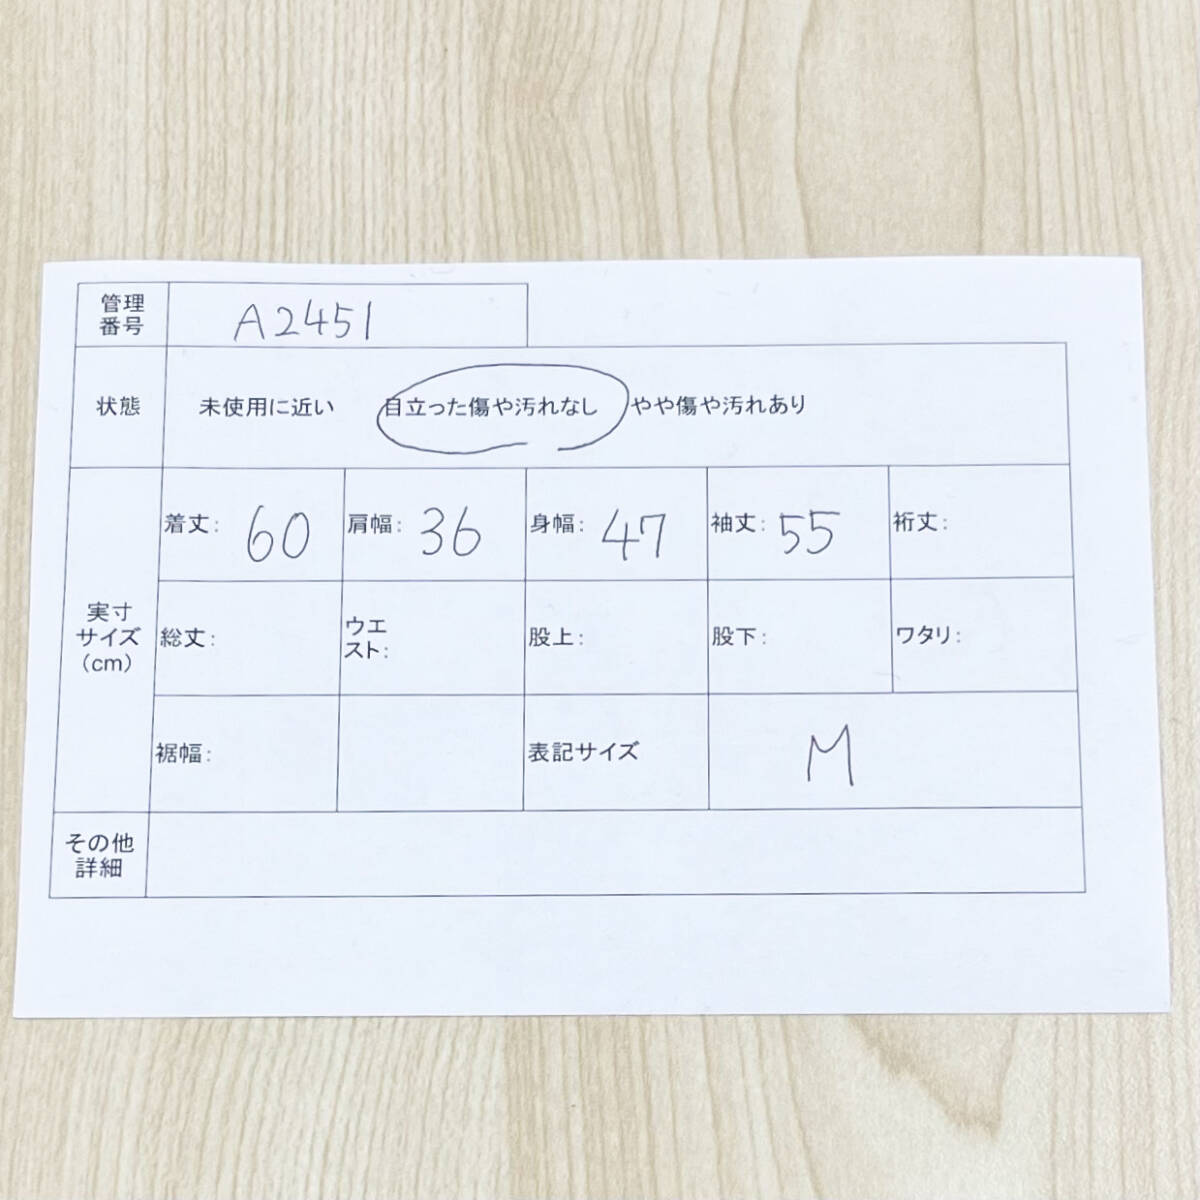 管理
番号
A2451
状態
未使用に近い 目立った傷や汚れなし やや傷や汚れあり
実寸
サイズ
(cm)
着丈: 60 肩幅: 36 身幅: 47 袖丈: 55 裄丈:
総丈: ウエ
スト: 股上: 股下: ワタリ:
裾幅: 表記サイズ M
その他
詳細